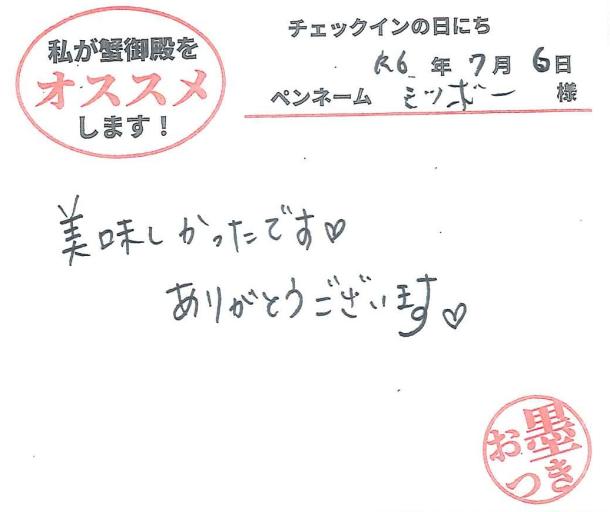 私が蟹御殿を
オススメ
します！
チェックインの日にち
R6年7月6日
ペンネーム ミツボー 様
美味しかったです♡
ありがとうございます♡
お墨
つき